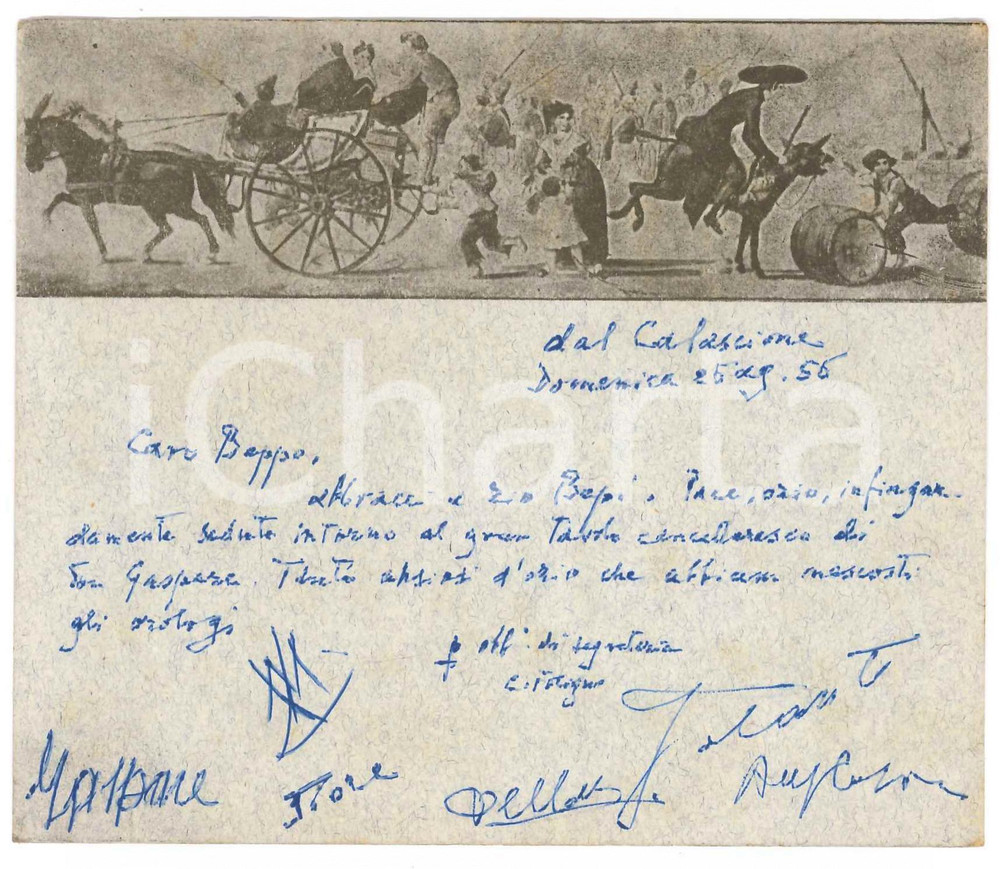 dal Calascione
Domenica 25 ag. 55
Caro Beppo,
abbracci a zio Bepi. Pane, ozio, infingar-
damente seduti intorno al gran tavolo cancelleresco di
Don Gaspare. Tanto ansiosi d'ozio che abbiam nascosti
gli orologi
p uff. di segreteria
Gaspare
iCharta